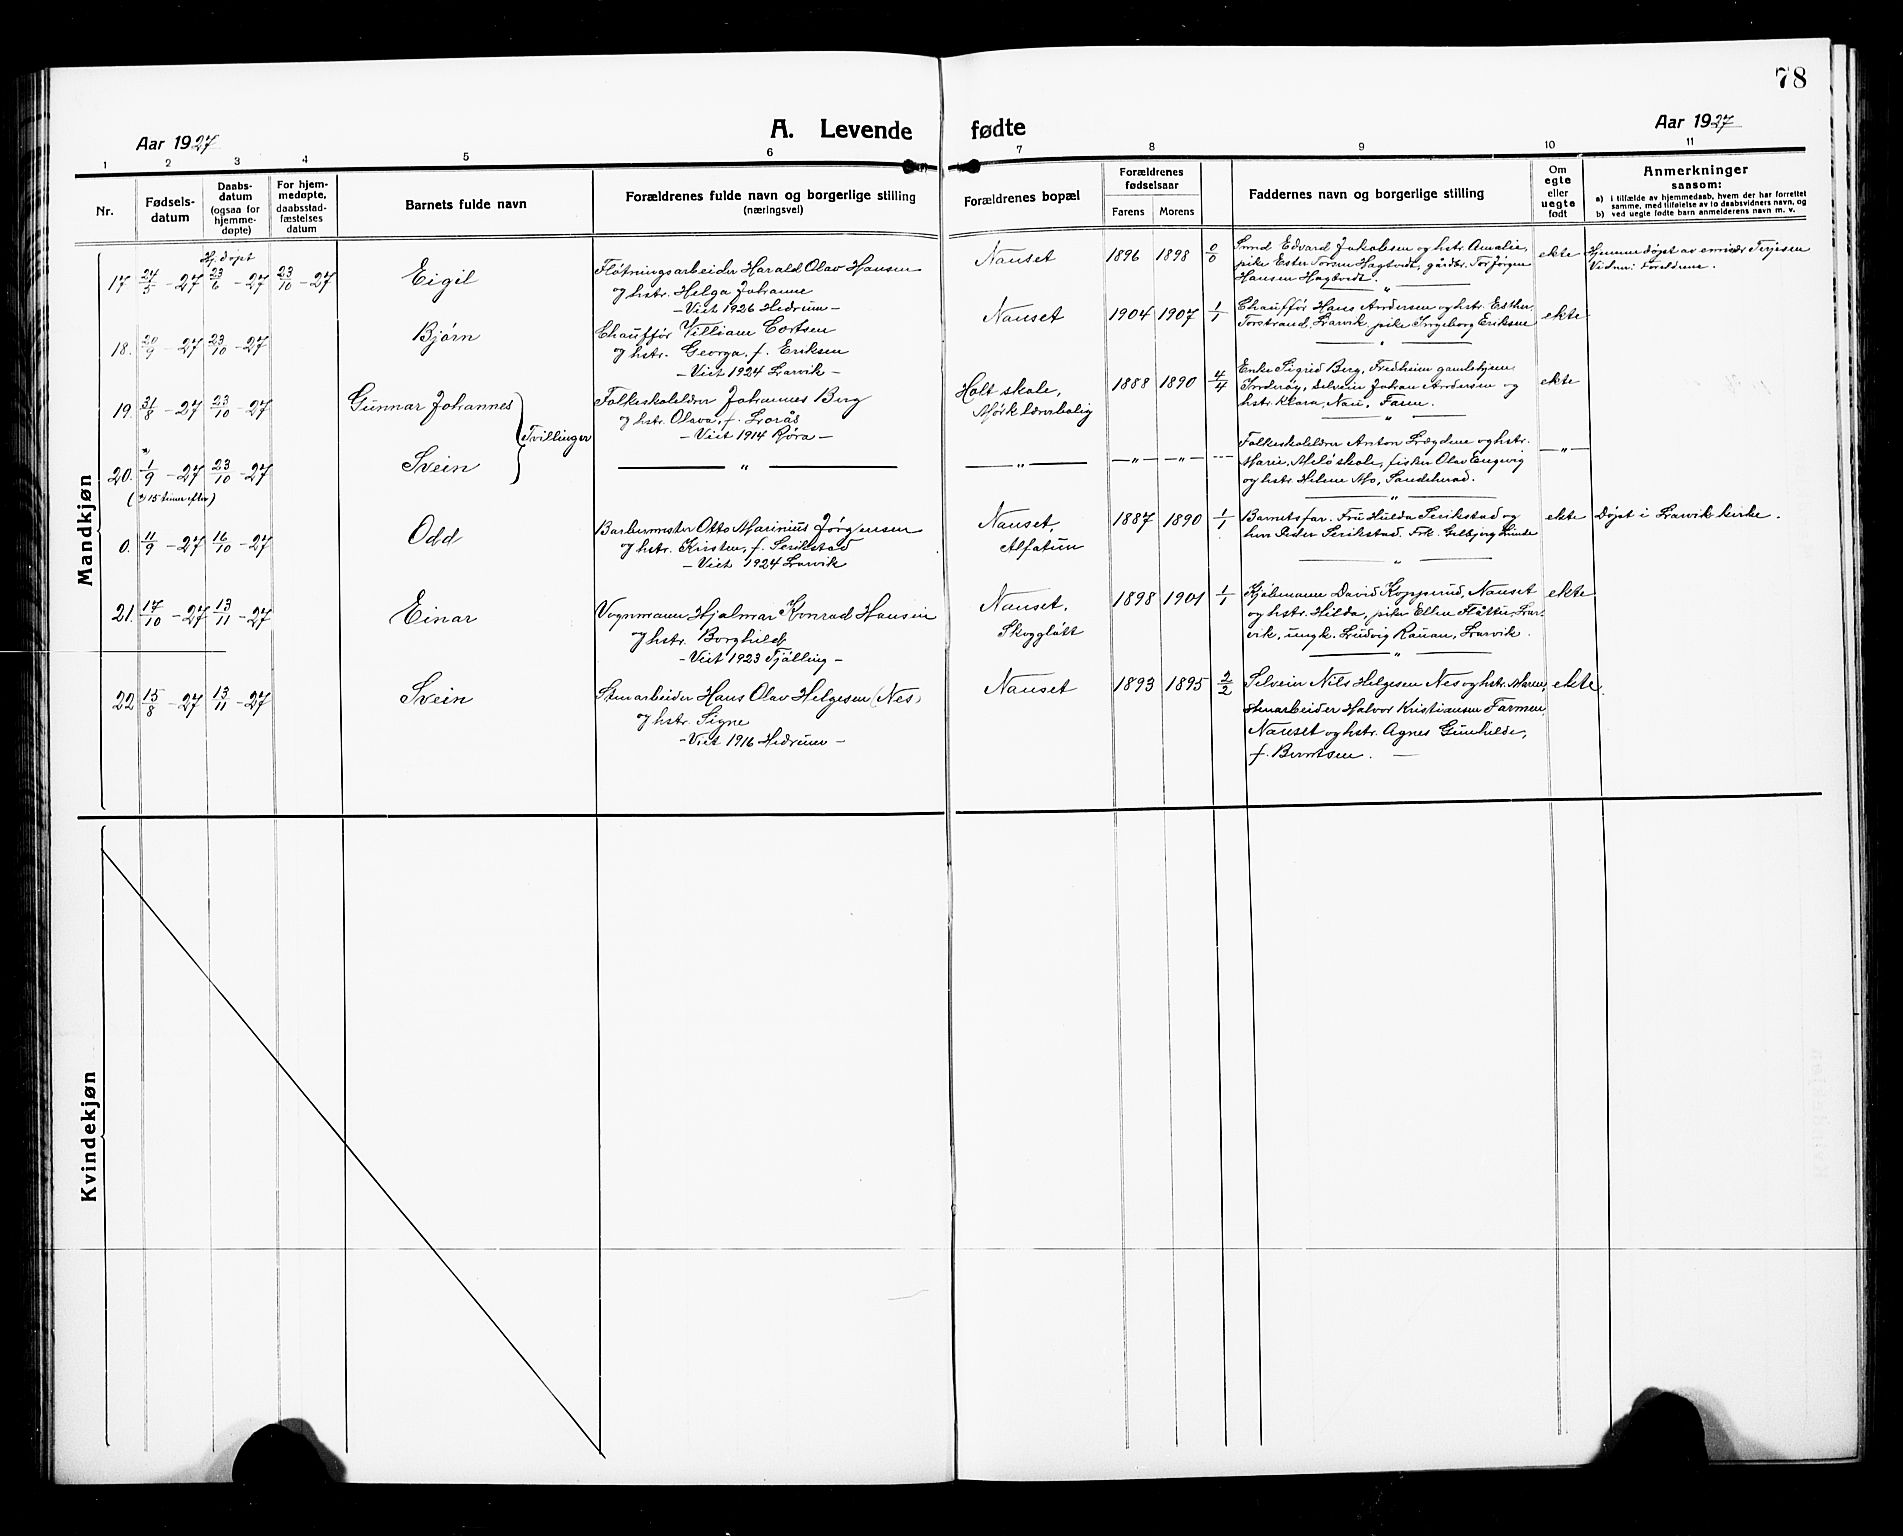 78
Aar 1927
A. Levende fødte
Aar 1927
1 2 3 4 5 6 7 8 9 10 11
Nr.
Fødsels-
datum
Daabs-
datum
(ogsaa for
hjemme-
døpte)
For hjem-
medøpte,
daabsstad-
fæstelses
datum
Barnets fulde navn
Forældrenes fulde navn og borgerlige stilling
(næringsvei)
Forældrenes bopæl
Forældrenes
fødselsaar
Farens Morens
Faddernes navn og borgerlige stilling
Om
egte
eller
uegte
født
Anmerkninger
saasom:
a) i tilfælde av hjemmedaab, hvem der har forrettet
samme, med tilføielse av to daabsvidners navn, og
b) ved uegte fødte barn anmelderens navn m. v.
Mandkjøn
Hj.døpt
17 24/5 - 27 23/6 - 27 23/10 - 27
Eigil
Fløtningsarbeider Harald Olav Hansen
og hstr. Helga Johanne
- Viet 1926 Hedrum -
Nauset
1896 1898 0/0
Smed Edvard Jakobsen og hstr. Amalie,
pike Ester Torsen Hagtvedt, gårdbr. Tor Jørgen
Hansen Hagtvedt.
ekte
Hjemmedøpt av Terjesen
Vidner: Foreldrene.
18. 20/9 - 27 23/10 - 27
Bjørn
Chauffør Villiam Cortsen
og hstr. Georga, f. Eriksen
- Viet 1924 Larvik -
Nauset
1904 1907 1/1
Chauffør Hans Andersen og hstr. Esther
Torstrand, Larvik, pike Ingeborg Eriksen
ekte
19. 31/8 - 27 23/10 - 27
Gunnar Johannes
Tvillinger
Folkeskolelærer Johannes Berg
og hstr. Olava, f. Lorås
- Viet 1914 Røra -
Holt skole,
Mørk lærerbolig
1888 1890 4/4
Enke Sigrid Berg, Fredheim gamlehjem
Inderøy, selveier Johan Andersen og
hstr. Klara, Nau, Farm.
ekte
20. 1/9 - 27 23/10 - 27
(15 timer efter)
Svein
— „ —
— „ —
— „ — — „ — ---
Folkeskolelærer Anton Lægdene og hstr.
Marie, Melø skole, fisker Olav Engevig
og hstr. Helene Mo, Sandeherad.
— „ —
0. 11/9 - 27 16/10 - 27
Odd
Barbermester Otto Marinius Jørgensen
og hstr. Kirsten, f. Serikstad
- Viet 1924 Larvik
Nauset,
Alfatun
1887 1890 1/1
Barnets far. Fru Hulda Serikstad og
herr Peder Serikstad. Frk. Gelbjørg Lunde
ekte
Døpt i Larvik kirke.
21. 17/10 - 27 13/11 - 27
Einar
Vognmann Hjalmar Konrad Hansen
og hstr. Borghild
- Viet 1923 Tjølling -
Nauset,
Skoggløtt
1898 1901 1/1
Kjøbmann David Kopperud, Nauset
og hstr. Hilda, pike Ellen Fløtter, Lar-
vik, ungk. Ludvig Rauan, Larvik.
ekte
22 15/8 - 27 13/11 - 27
Svein
Stenarbeider Hans Olav Helgesen (Nes)
og hstr. Signe
- Viet 1916 Hedrum -
Nauset
1893 1895 2/2
Selveier Nils Helgesen Nes og hstr. Maren,
stenarbeider Halvor Kristiansen Farmen,
Nauset og hstr. Agnes Gunhilde,
f. Berntsen. —
ekte.
Kvindekjøn